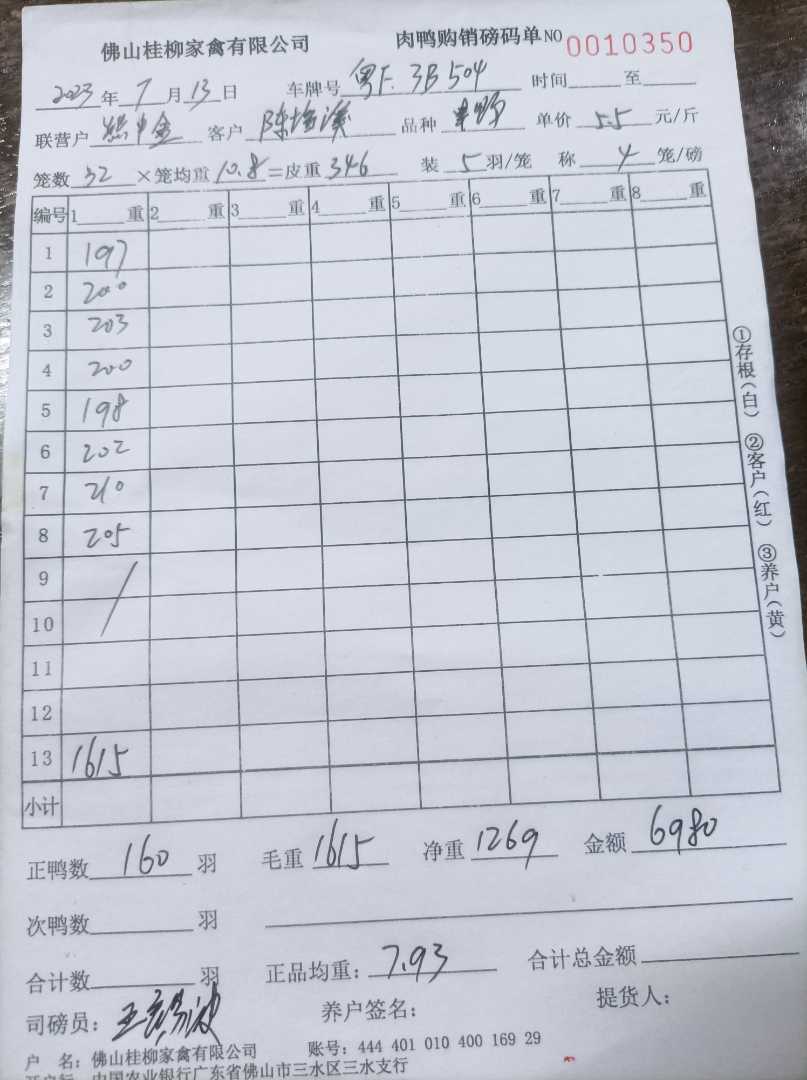 佛山桂柳家禽有限公司 肉鸭购销磅码单 NO 0010350
2023年7月13日 车牌号 粤F.3B504 时间 至
联营户 客户 陈 品种 单价 5.5 元/斤
笼数 32 ×笼均重 10.8 =皮重 346 装 5 羽/笼 称 4 笼/磅
编号 1 重 2 重 3 重 4 重 5 重 6 重 7 重 8 重
1 197
2 200
3 203
4 200
5 198
6 202
7 210
8 205
9
10
11
12
13 1615
小计
①存根(白) ②客户(红) ③养户(黄)
正鸭数 160 羽 毛重 1615 净重 1269 金额 6980
次鸭数 羽
合计数 羽 正品均重: 7.93 合计总金额
司磅员: 王 养户签名: 提货人:
户 名: 佛山桂柳家禽有限公司 账号: 444 401 010 400 169 29
开户行: 中国农业银行广东省佛山市三水区三水支行